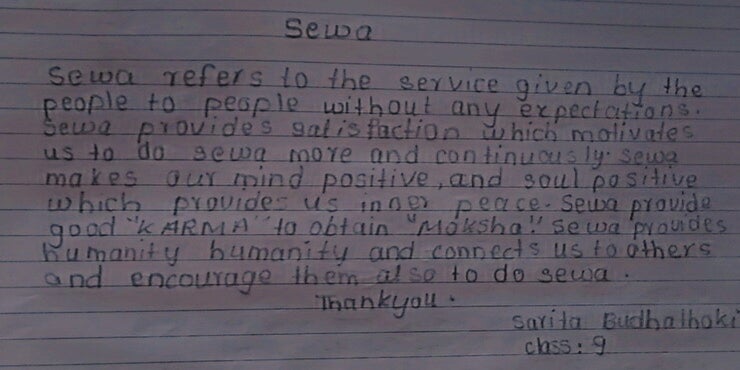 Sewa
Sewa refers to the service given by the
people to people without any expectations.
Sewa provides satisfaction which motivates
us to do sewa more and continuously. Sewa
makes our mind positive, and soul positive
which provides us inner peace. Sewa provide
good "KARMA" to obtain "Moksha". Sewa provides
humanity humanity and connects us to others
and encourage them also to do sewa.
Thankyou.
Sarita Budhathoki
class: 9